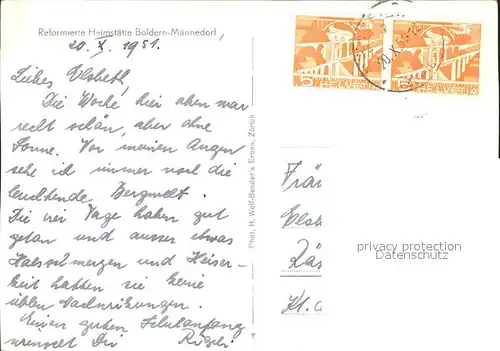 Reformierte Heimstätte Boldern-Männedorf
20. X. 1951.
Liebes Elsbeth!
Die Woche hier oben war
recht schön, aber ohne
Sonne. Vor meinen Augen
sehe ich immer noch die
leuchtende Bergwelt.
Die drei Tage haben gut
getan und ausser etwas
Halsschmerzen und Heiser-
keit hatten sie keine
üblen Nachwirkungen.
Einen guten Schulanfang
wünscht Dir
Phot. H. Wolf-Bender's Erben, Zürich
5 HELVETIA
5 HELVETIA
20.X.51
Fräu
Elsb
Kt.
privacy protection
Datenschutz